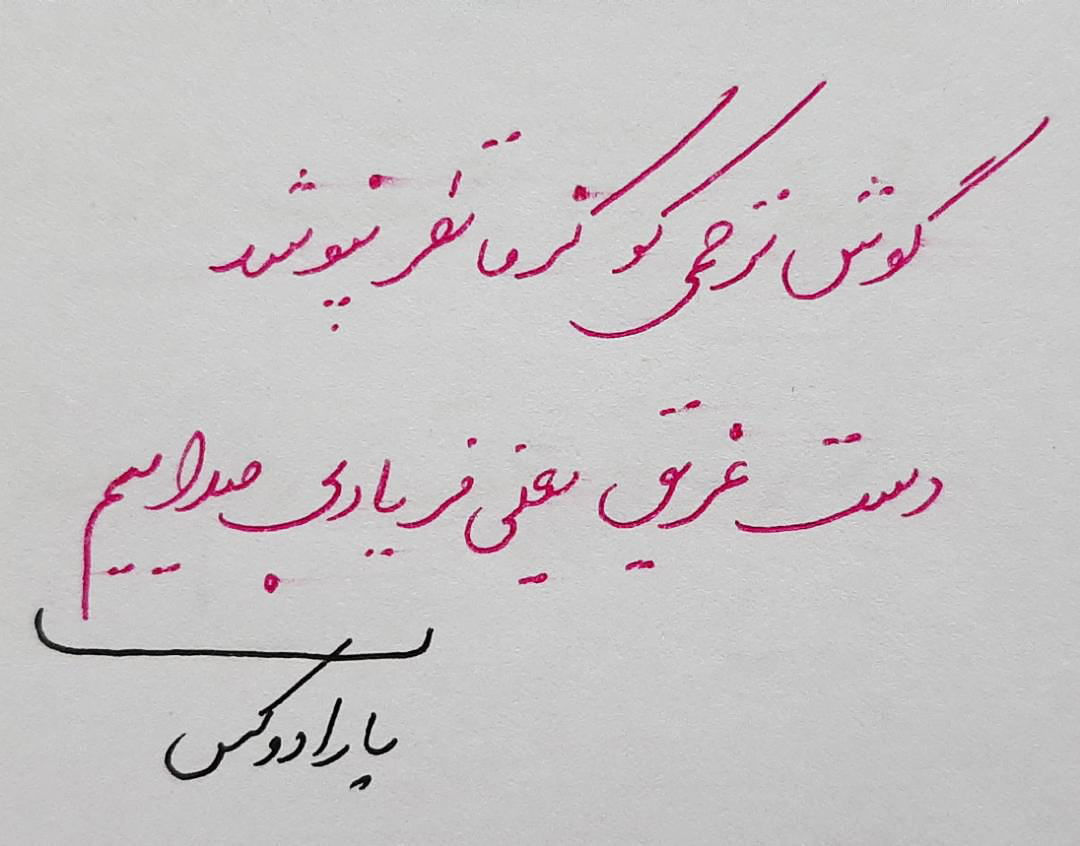 گوش ترحمی کو کز ما نظر نپوشد
دست غریق یعنی فریاد بی صداییم
پارادوکس